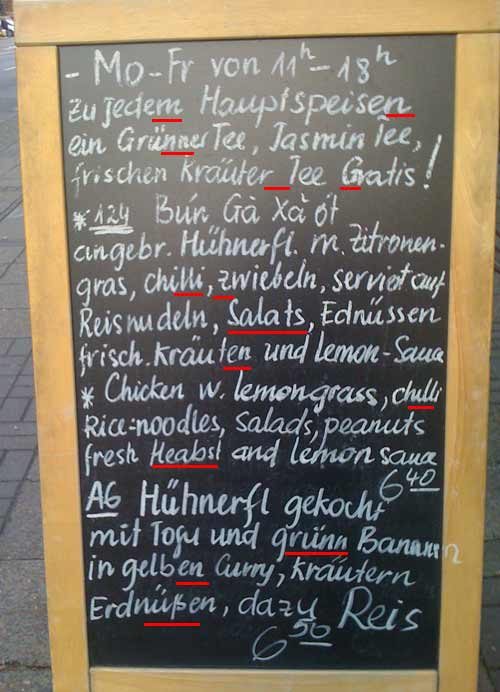 - Mo-Fr von 11h-18h
Zu jedem Hauptspeisen
ein Grünner Tee, Jasmin Tee,
frischen Kräuter Tee Gratis!
* 124 Bún Gà Xả ớt
angebr. Hühnerfl. m. Zitronen-
gras, chilli, zwiebeln, serviert auf
Reisnudeln, Salats, Ednüssen
frisch. Kräuten und lemon-Sauce
* Chicken w. lemongrass, chilli
Rice-noodles, Salads, peanuts
fresh Heabst and lemon sauce
6 40
A6 Hühnerfl gekocht
mit Tofu und grünn Bananen
in gelben Curry, Kräutern
Erdnüßen, dazu Reis
6 50